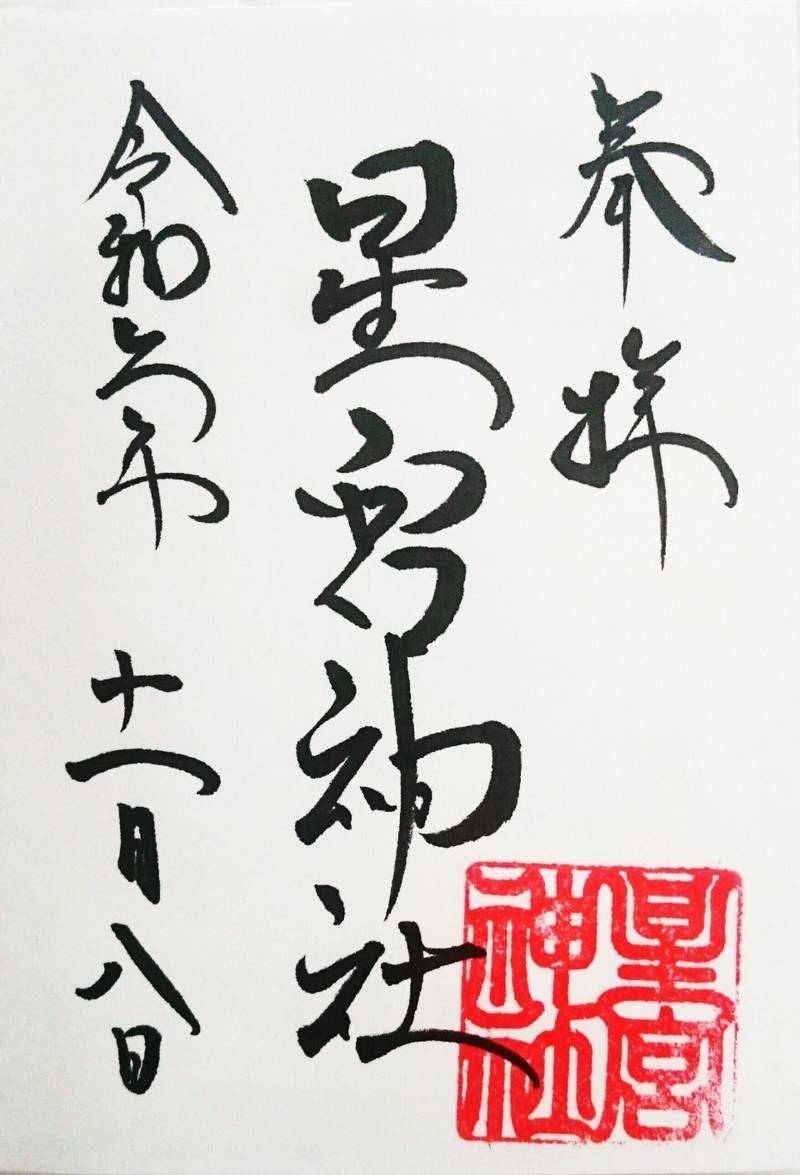 奉拝
星宮神社
令和六年 十一月八日
星宮
神社